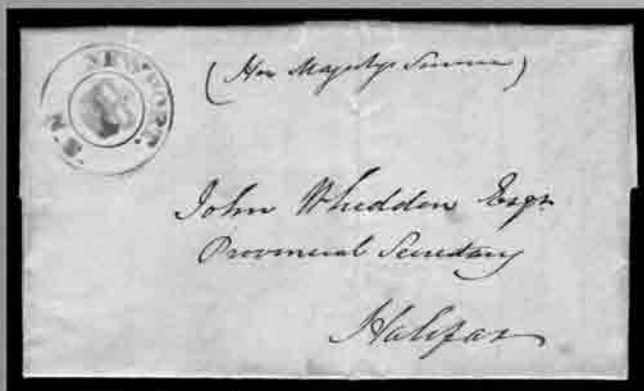 NEWPORT. N.S.
(Her Majestys Service)
John Whidden Esqr
Provincial Secretary
Halifax